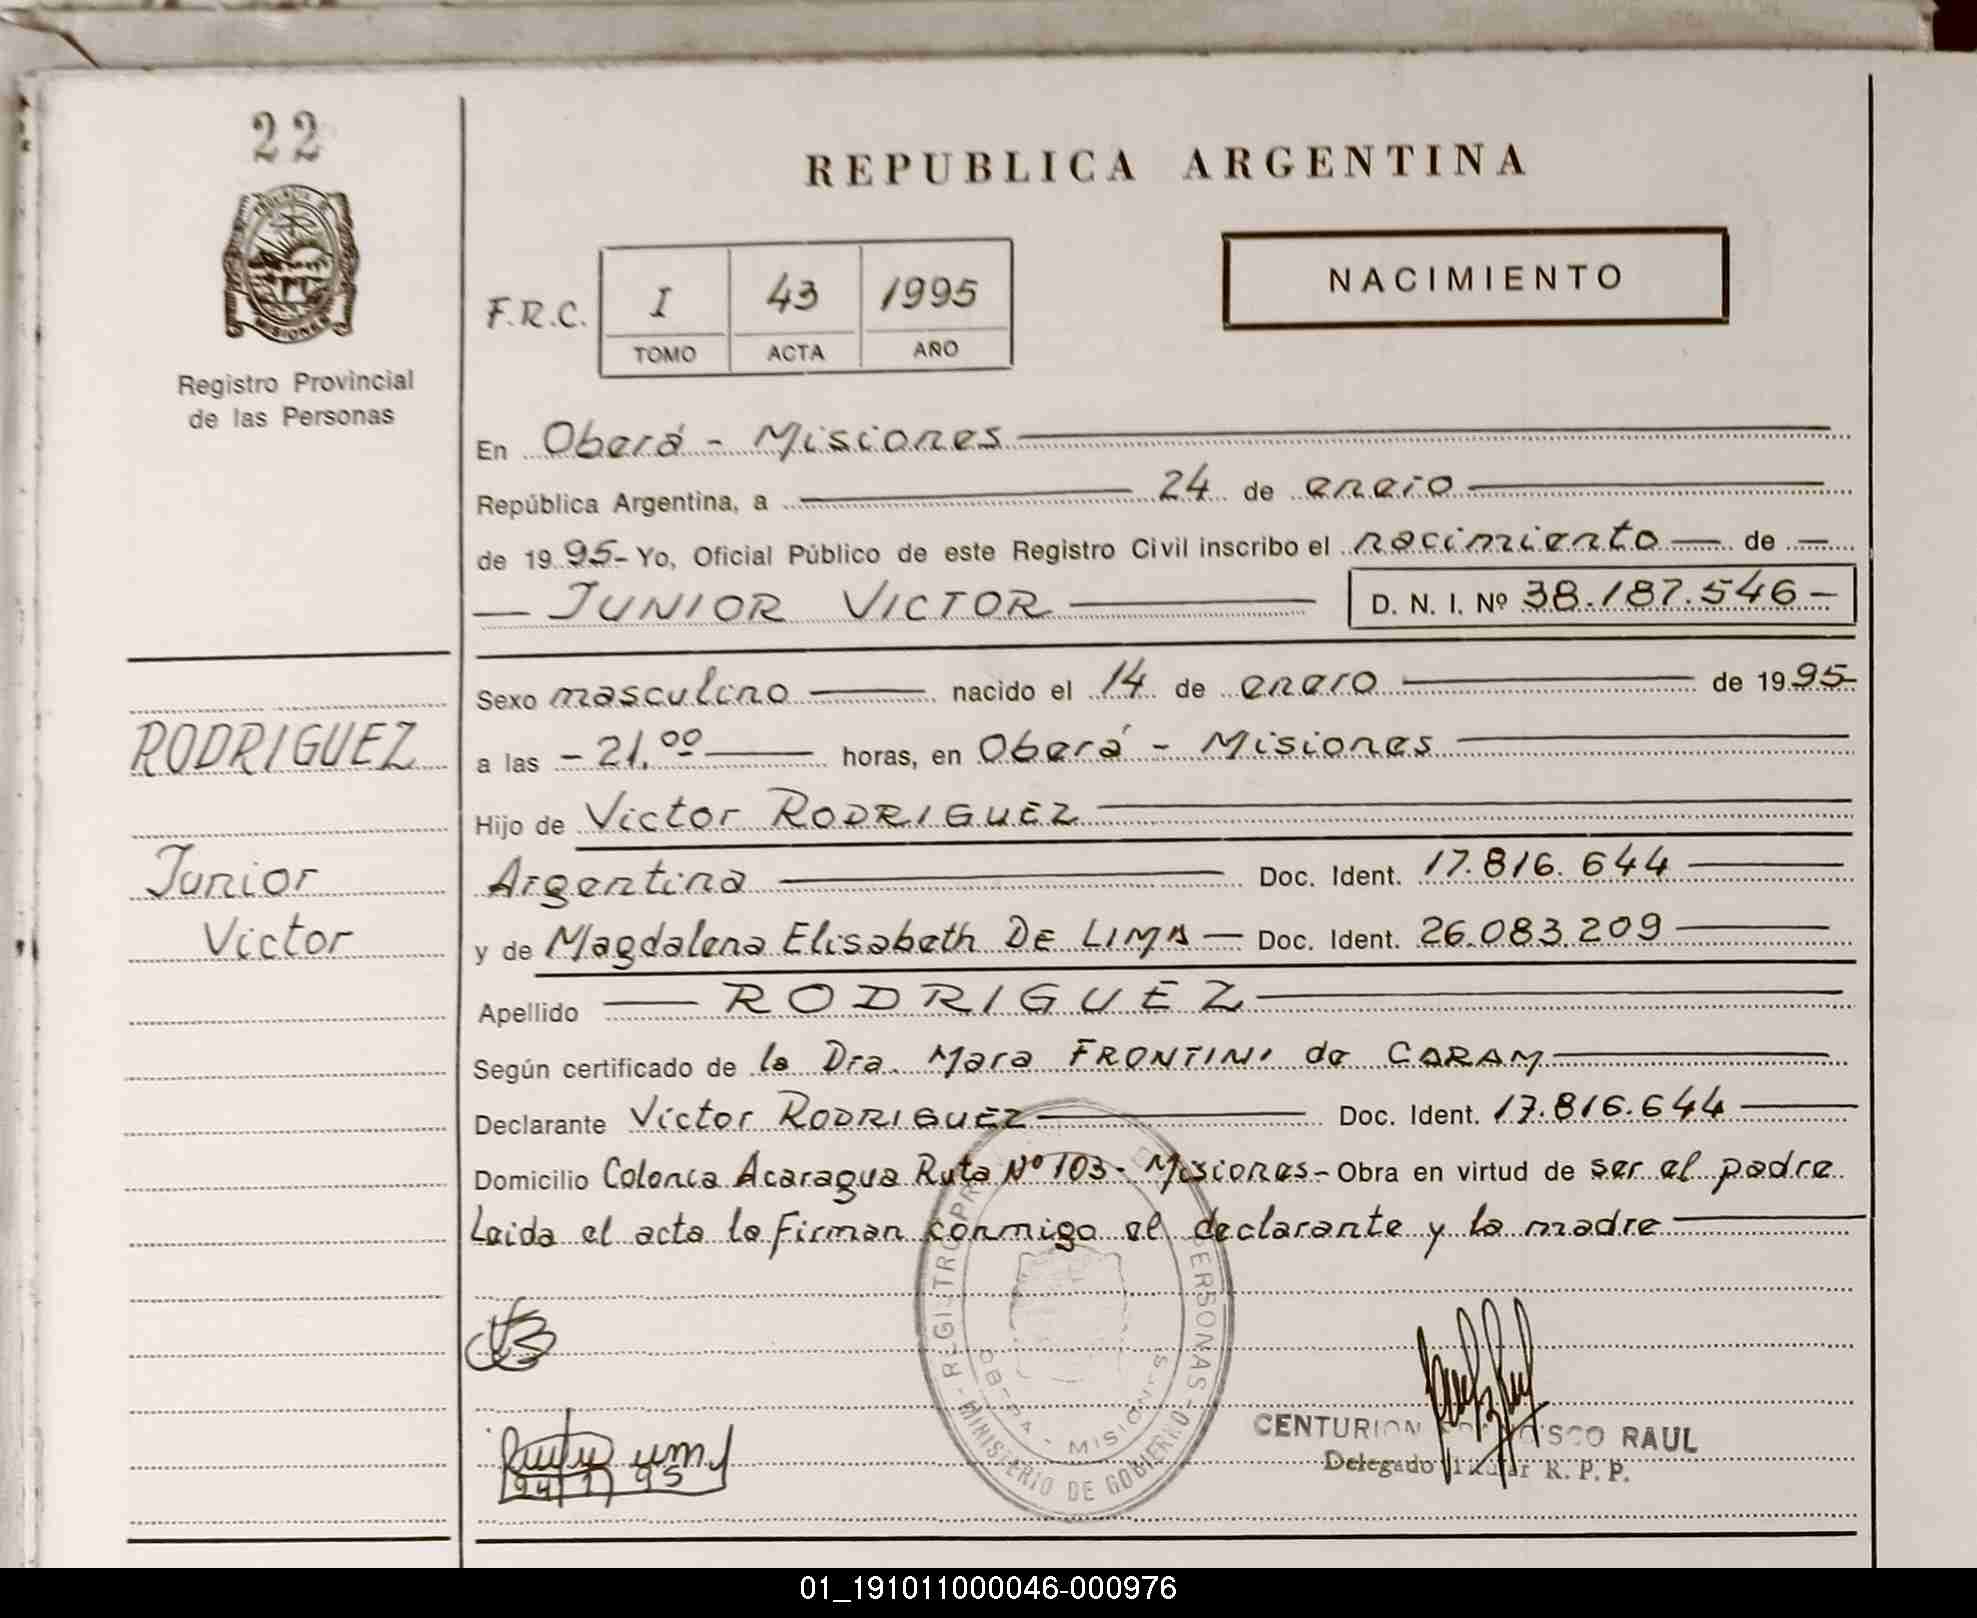 22
REPUBLICA ARGENTINA
NACIMIENTO
F.R.C.
I 43 1995
TOMO ACTA AÑO
MISIONES
Registro Provincial
de las Personas
En Oberá - Misiones
República Argentina, a 24 de enero
de 19 95- Yo, Oficial Público de este Registro Civil inscribo el nacimiento de
JUNIOR VICTOR D. N. I. Nº 38.187.546-
Sexo masculino nacido el 14 de enero de 19 95-
RODRIGUEZ
a las - 21.00 horas, en Oberá - Misiones
Hijo de Victor RODRIGUEZ
Junior
Argentina Doc. Ident. 17.816.644
Victor
y de Magdalena Elisabeth DE LIMA - Doc. Ident. 26.083.209
Apellido RODRIGUEZ
Según certificado de la Dra. Mara FRONTINI de CARAM
Declarante Victor RODRIGUEZ Doc. Ident. 17.816.644
Domicilio Colonia Acaragua Ruta Nº 103 - Misiones - Obra en virtud de ser el padre
Leida el acta la firman conmigo el declarante y la madre
REGISTRO PERSONAS - MINISTERIO DE GOBIERNO -
OBERA - MISIONES
CENTURION RAUL
Delegado Titular R. P. P.
01_191011000046-000976